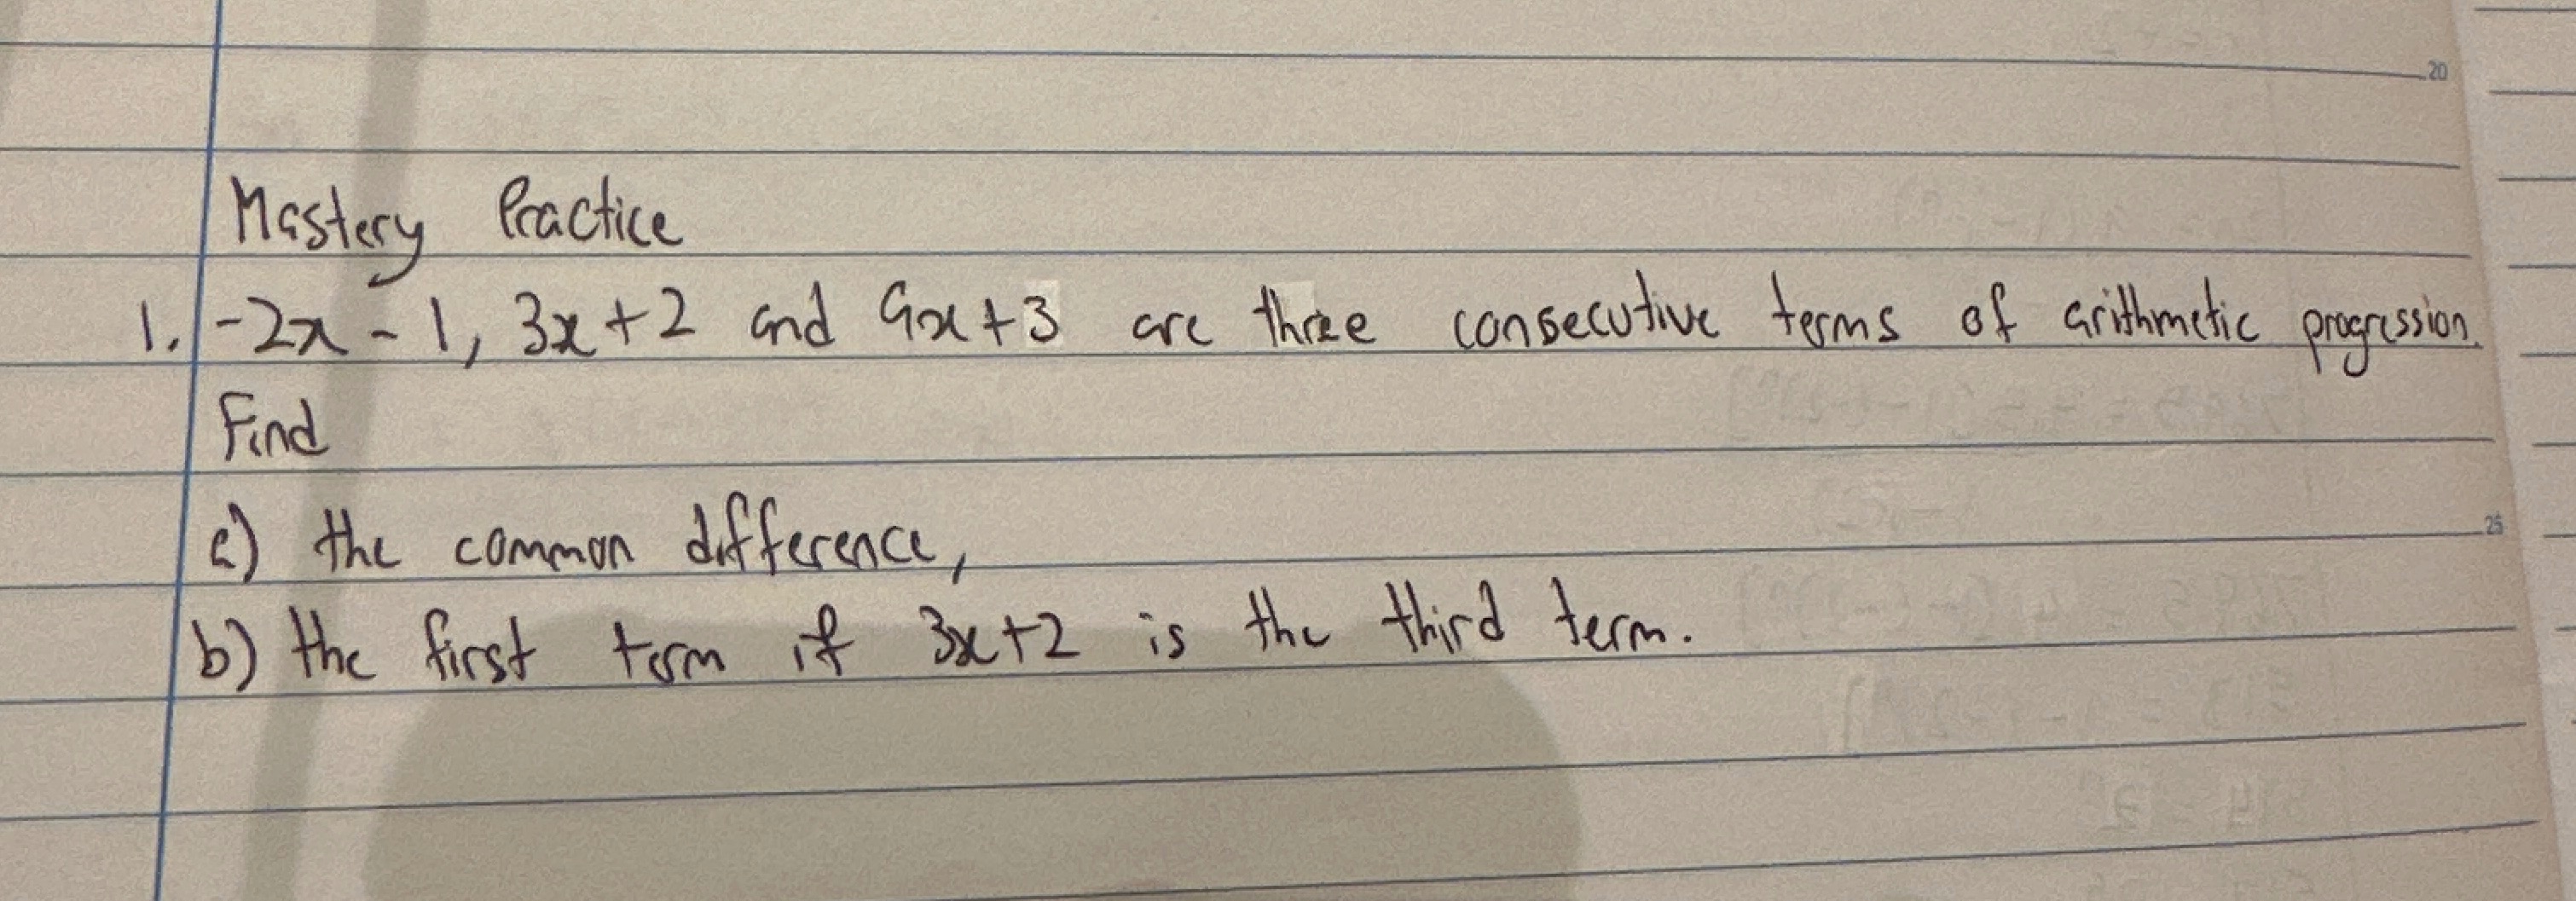 20
Mastery Practice
1. -2x - 1, 3x + 2 and 9x + 3 are three consecutive terms of arithmetic progression.
Find
a) the common difference,
25
b) the first term if 3x + 2 is the third term.